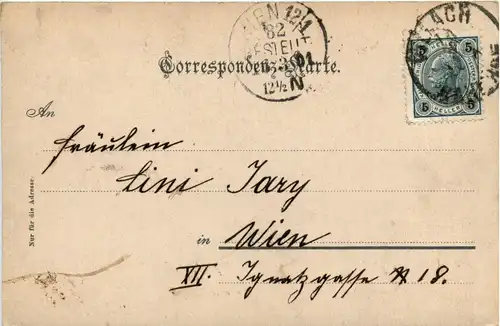 WIEN 12/1
82
BESTELLT
12½ N
5 5
HELLER
Correspondenz-Karte.
An
Fräulein
Lini Jary
in Wien
XII. Ignatzgasse № 18.
Nur für die Adresse.